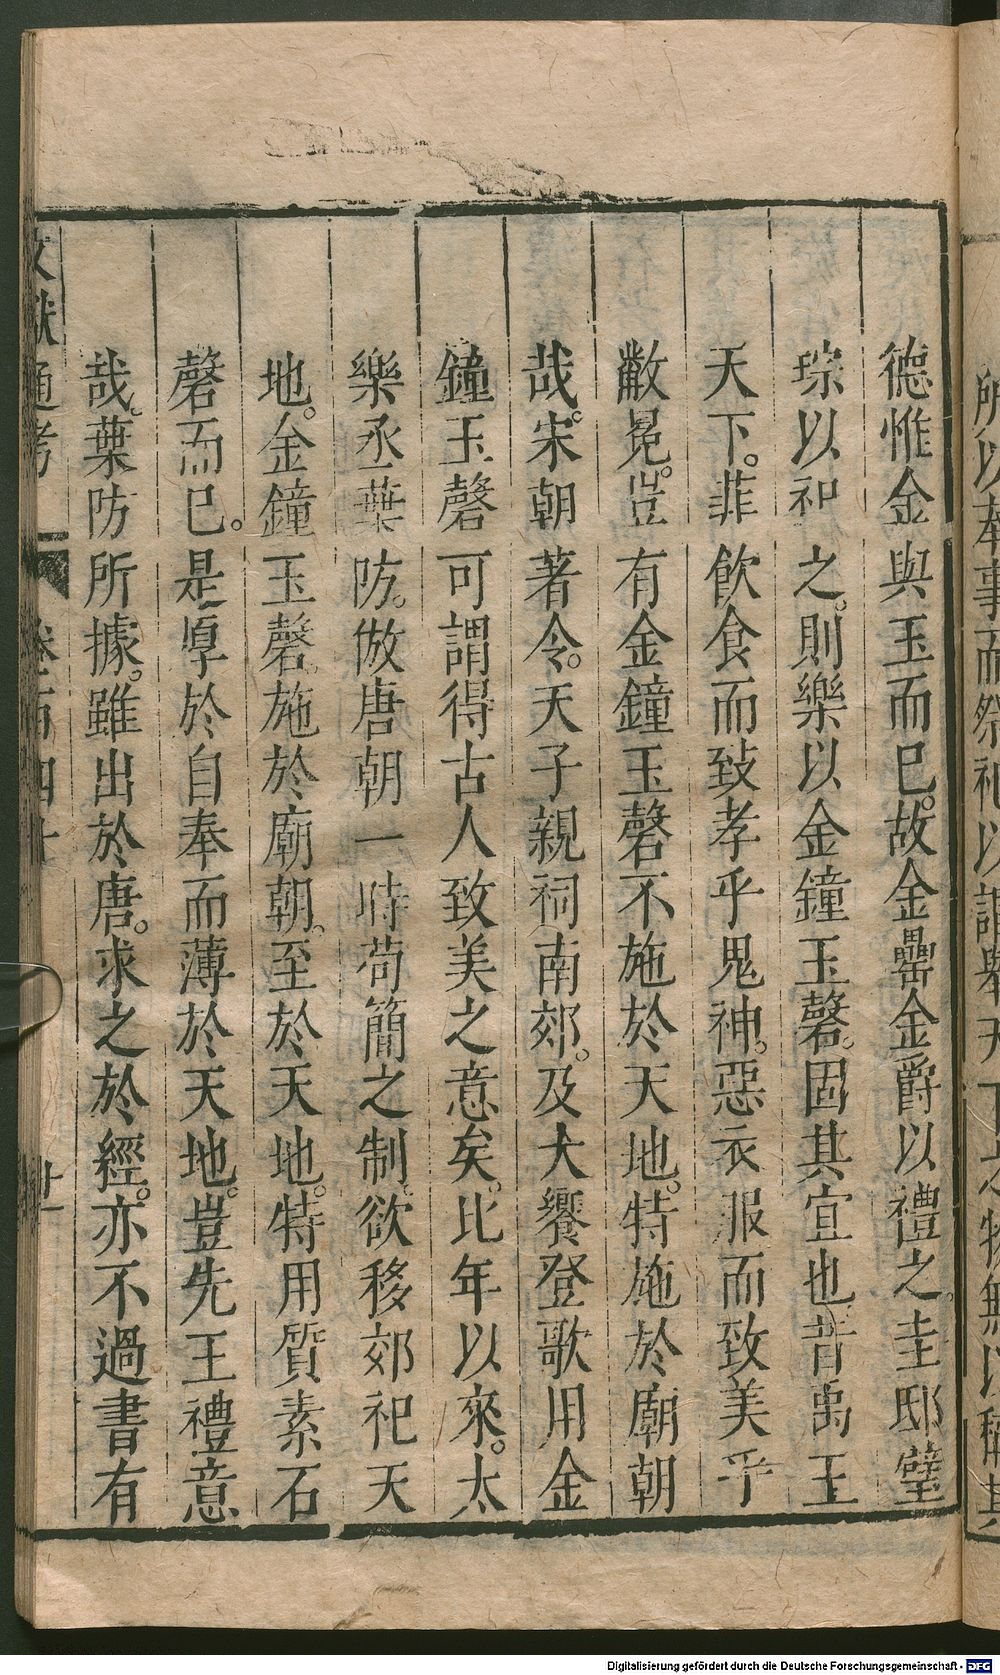 德惟金與玉而已。故金罍金爵以禮之。圭邸璧
琮以祀之。則樂以金鐘玉磬。固其宜也昔禹王
天下。菲飲食而致孝乎鬼神。惡衣服而致美乎
黻冕。豈有金鐘玉磬不施於天地。特施於廟朝
哉。宋朝著令。天子親祠南郊。及大饗登歌用金
鐘玉磬可謂得古人致美之意矣。比年以來。太
樂丞葉防。倣唐朝一時苟簡之制。欲移郊祀天
地。金鐘玉磬。施於廟朝。至於天地。特用質素石
磬而已。是厚於自奉而薄於天地。豈先王禮意
哉。葉防所據。雖出於唐。求之於經。亦不過書有
文獻通考 卷百四十 廿一
所以奉事而祭祀以謂舉天下之物無以稱其
Digitalisierung gefördert durch die Deutsche Forschungsgemeinschaft - DFG